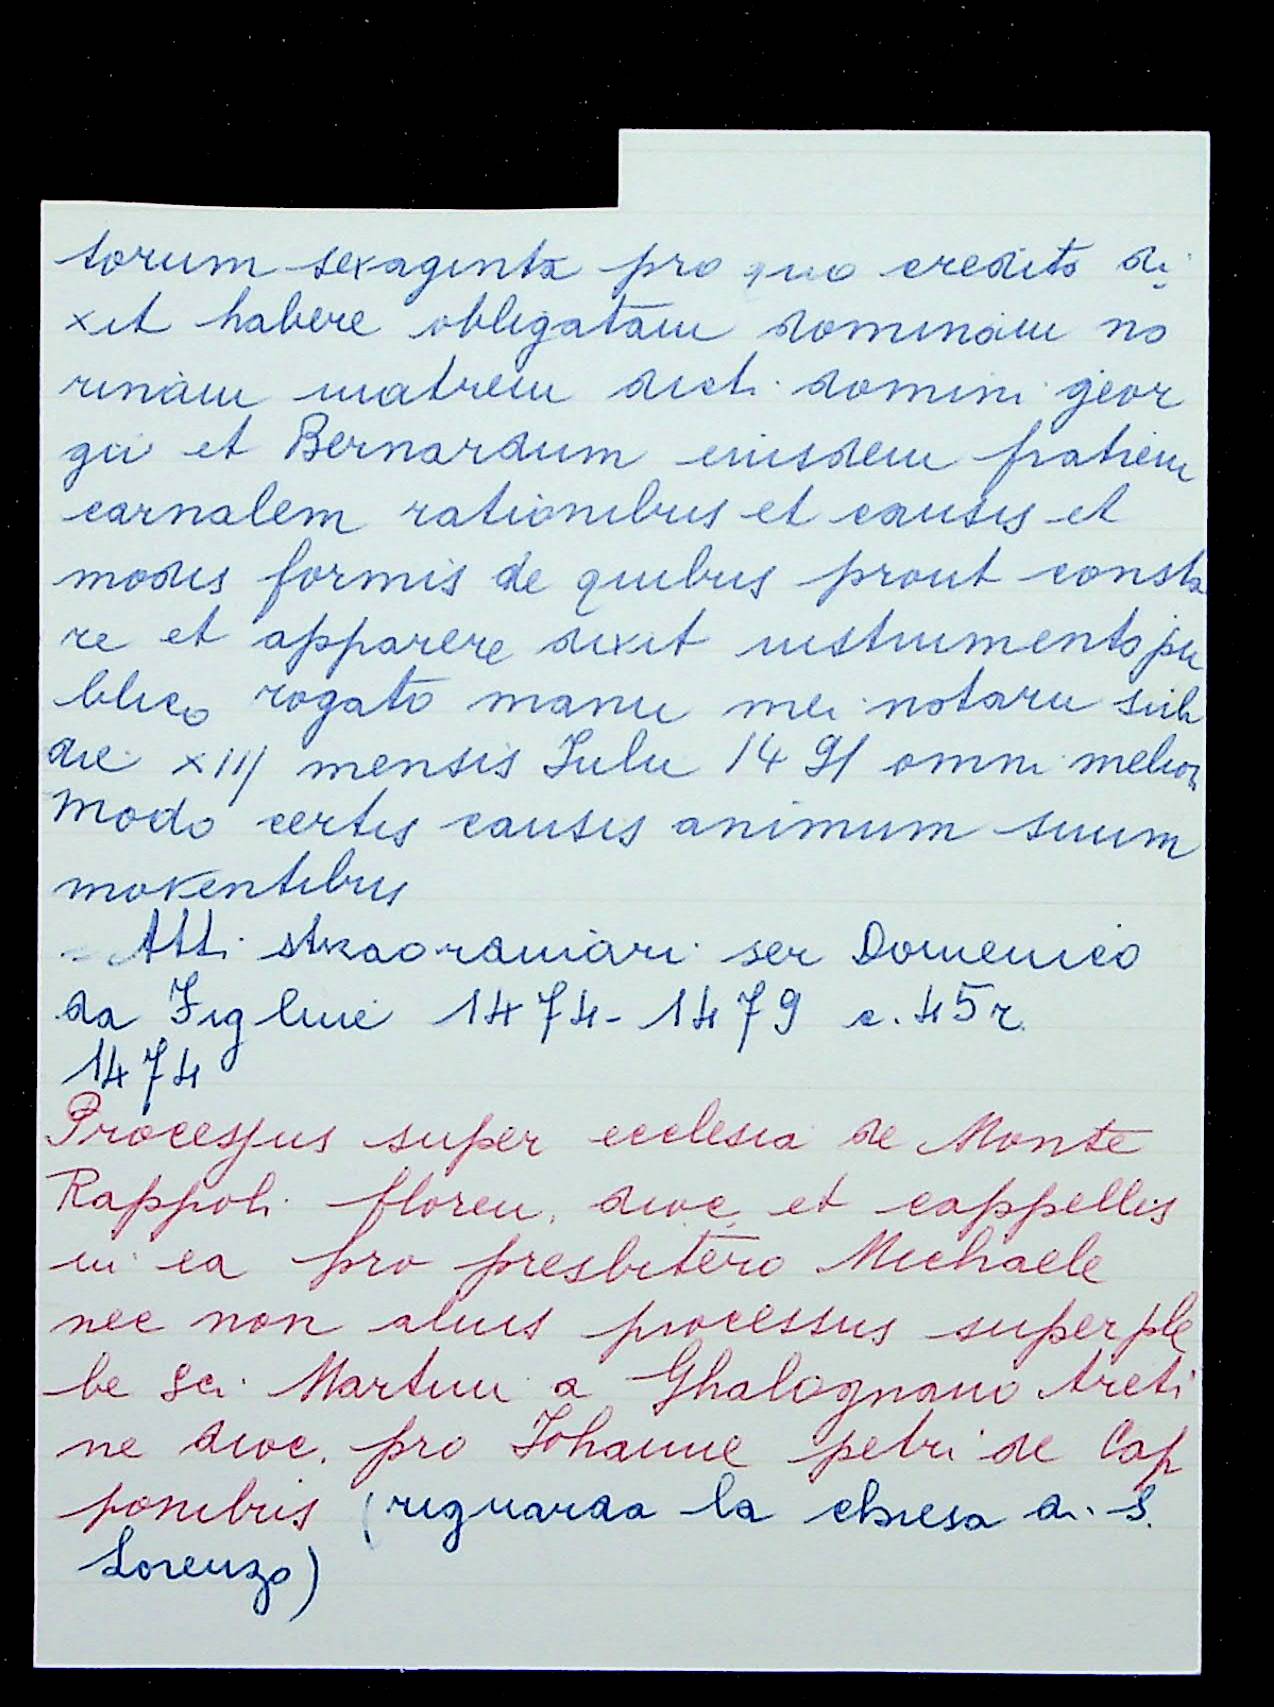 torum sexaginta pro quo credito di
xit habere obligatam dominam no
rinam matrem dicti domini geor
gii et Bernardum eiusdem fratrem
carnalem rationibus et causis et
modis formis de quibus prout consta
re et apparere dixit instrumento pu
blico rogato manu mei notarii sub
die XIII mensis Iulii 1491 omni meliori
modo certis causis animum suum
moventibus
- Atti straordinari ser Domenico
da Figline 1474-1479 c. 45r.
1474
Processus super ecclesia de Monte
Rappoli floren. dioc. et cappellis
in ea pro presbitero Michaele
nec non alius processus super ple
be sci. Martini a Ghalognano Areti
ne dioc. pro Johanne petri de Cap
ponibus (riguarda la chiesa di S.
Lorenzo)